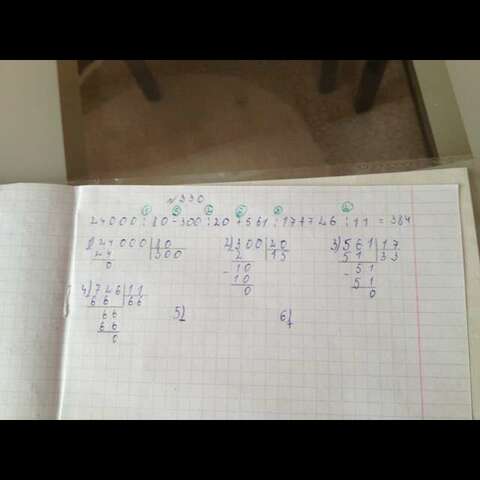 № 330
24000 : 80 - 300 : 20 + 561 : 17 + 746 : 11 = 384
1) 24000 | 80
24 | 300
0
2) 300 | 20
2 | 15
- 10
10
0
3) 561 | 17
51 | 33
- 51
51
0
4) 746 | 11
66 | 66
66
66
0
5)
6)